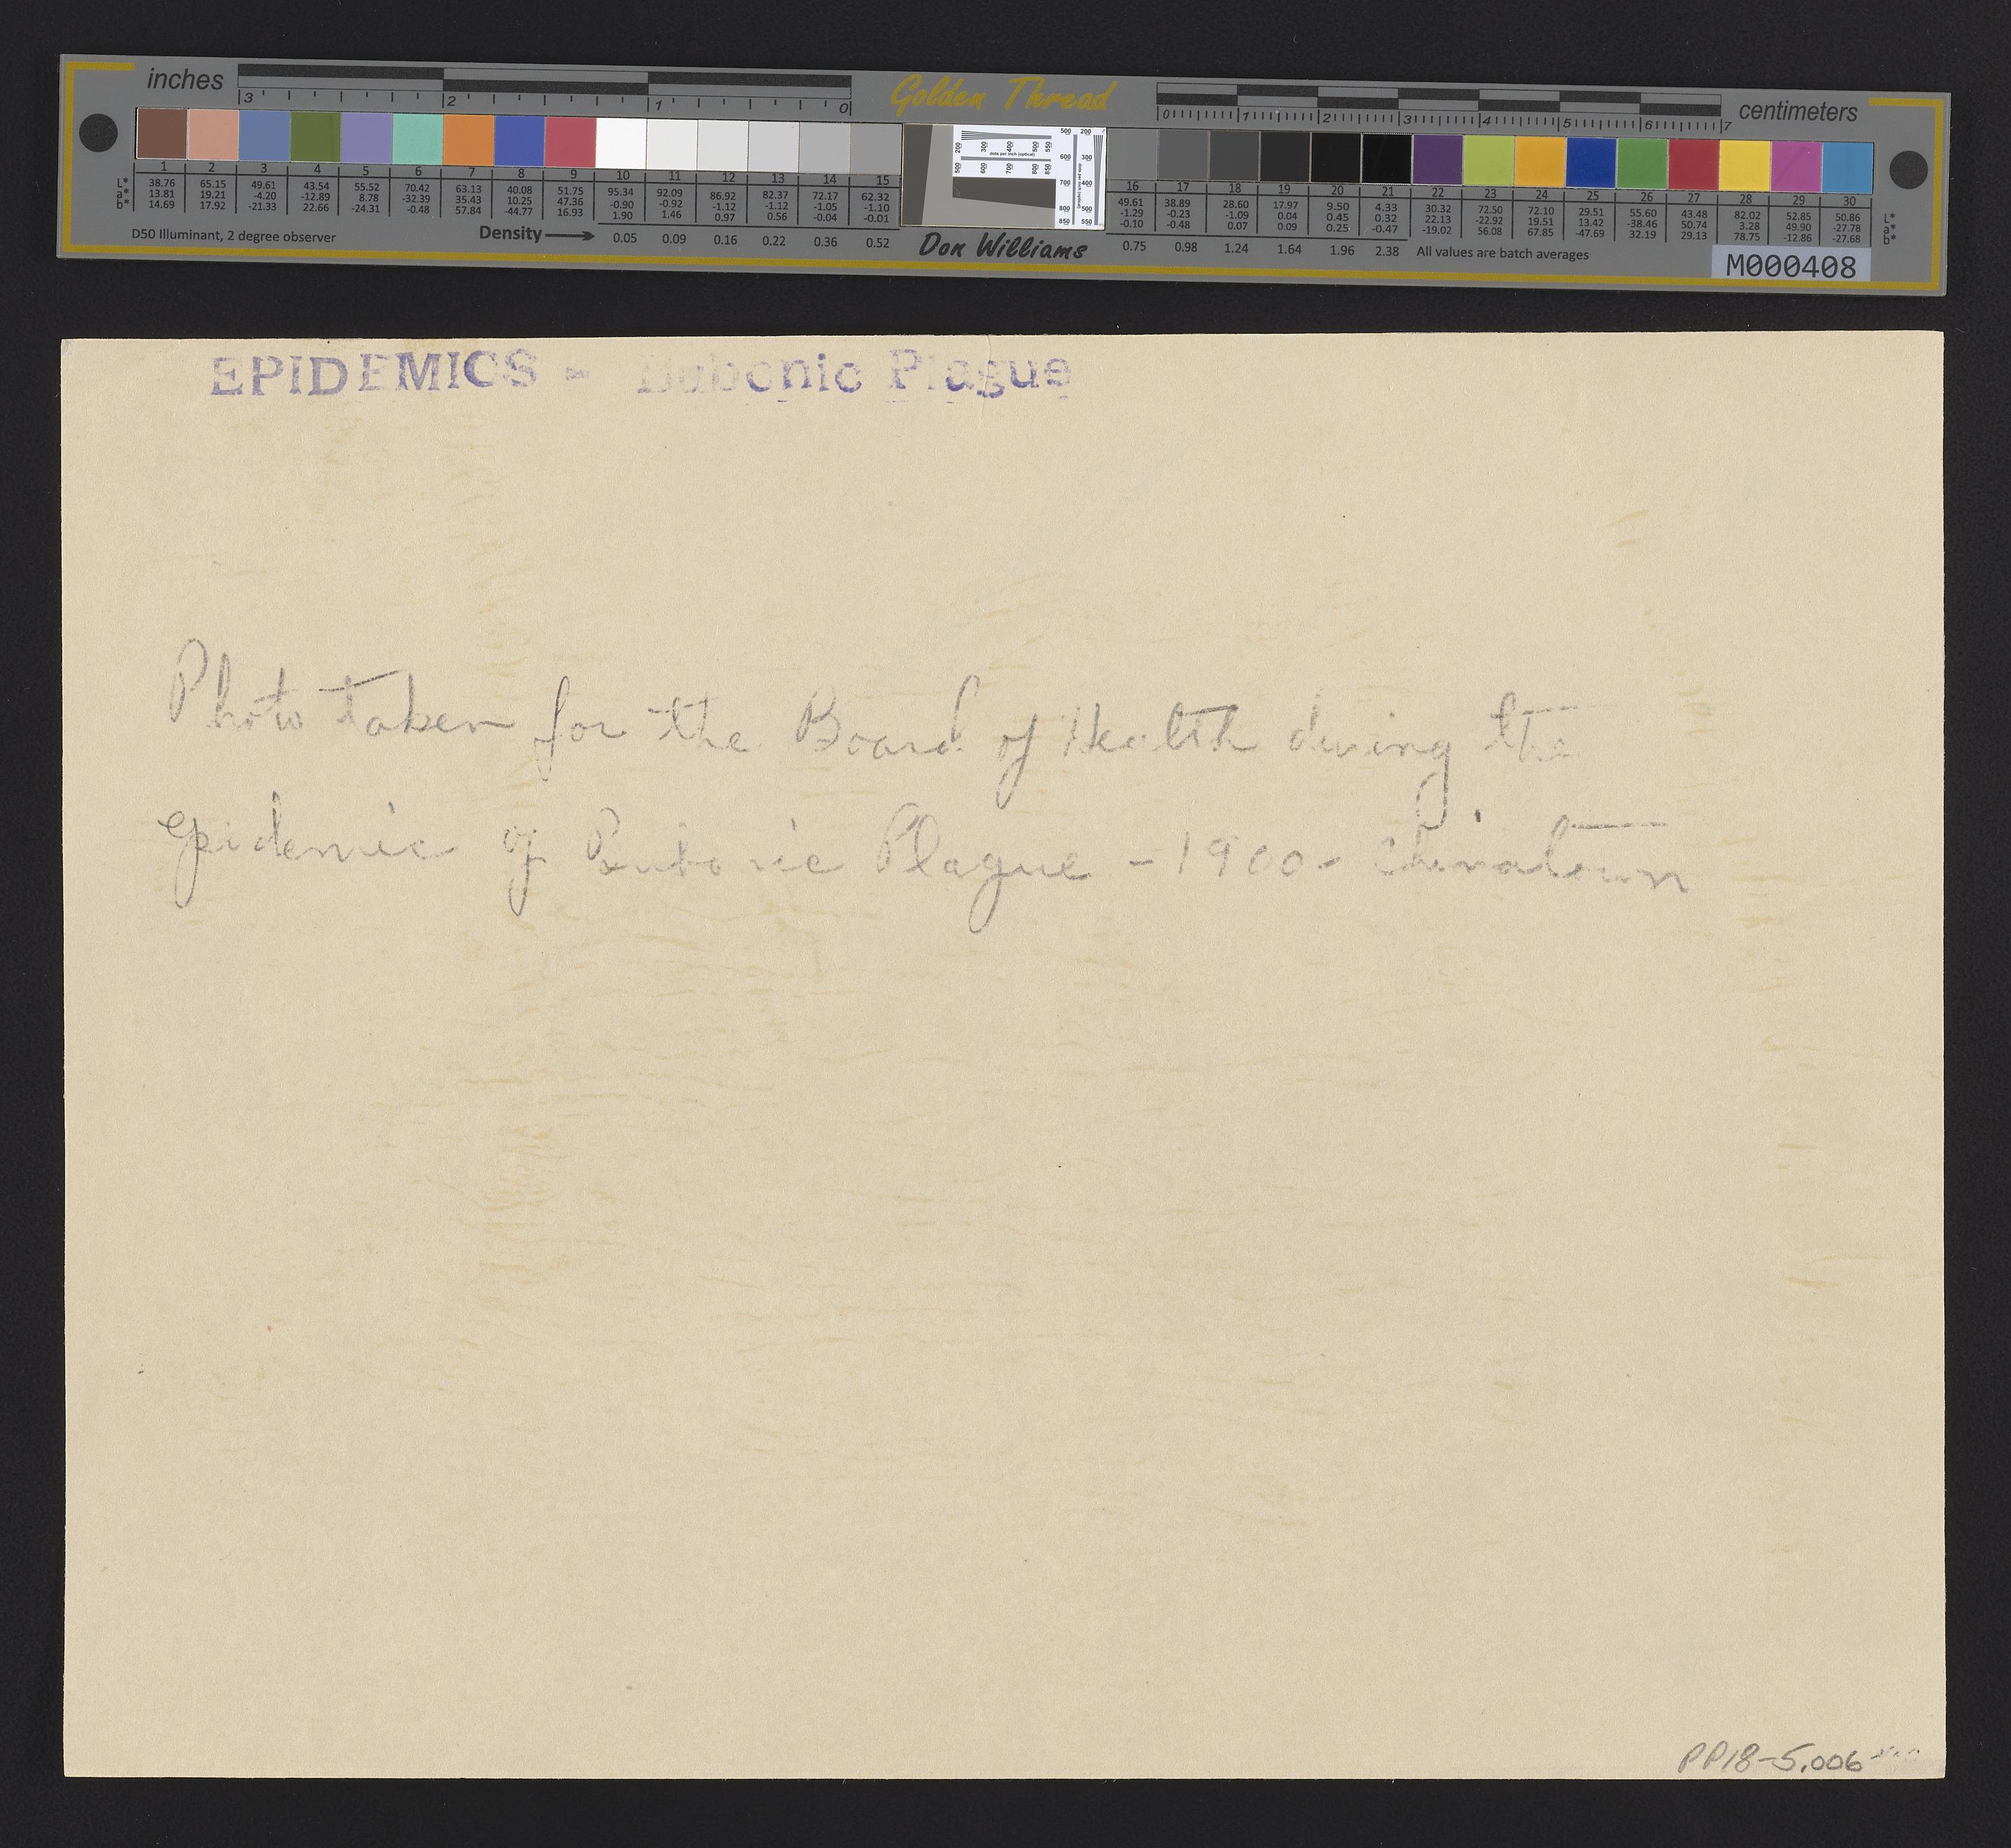 inches
3 2 1 0
Golden Thread
0 1 2 3 4 5 6 7
centimeters
1 2 3 4 5 6 7 8 9 10 11 12 13 14 15
L* 38.76 65.15 49.61 43.54 55.52 70.42 63.13 40.08 51.75 95.34 92.09 86.92 82.37 72.17 62.32
a* 13.81 19.21 -4.20 -12.89 8.78 -32.39 35.43 10.25 47.36 -0.90 -0.92 -1.12 -1.12 -1.05 -1.10
b* 14.69 17.92 -21.33 22.66 -24.31 -0.48 57.84 -44.77 16.93 1.90 1.46 0.97 0.56 -0.04 -0.01
D50 Illuminant, 2 degree observer
Density 0.05 0.09 0.16 0.22 0.36 0.52
Don Williams
16 17 18 19 20 21 22 23 24 25 26 27 28 29 30
49.61 38.89 28.60 17.97 9.50 4.33 30.32 72.50 72.10 29.51 55.60 43.48 82.02 52.85 50.86 L*
-1.29 -0.23 -1.09 0.04 0.45 0.32 22.13 -22.92 19.51 13.42 -38.46 50.74 3.28 49.90 -27.78 a*
-0.10 -0.48 0.07 0.09 0.25 -0.47 -19.02 56.08 67.85 -47.69 32.19 29.13 78.75 -12.86 -27.68 b*
0.75 0.98 1.24 1.64 1.96 2.38 All values are batch averages
M000408
EPIDEMICS - Bubonic Plague
Photo taken for the Board of Health during the
Epidemic of Bubonic Plague - 1900 - Chinatown
PP18-5.006